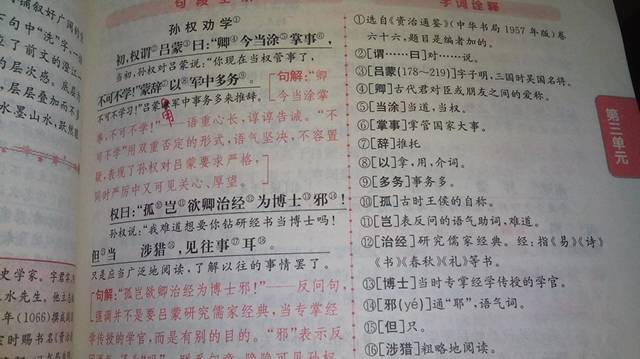 字词注释
孙权劝学①
初,权谓②吕蒙③曰:“卿④今当涂⑤掌事⑥,
当初,孙权对吕蒙说:“你现在当权管事了,
不可不学!”蒙辞⑦以⑧军中多务⑨。
不可不学习!”吕蒙用军中事务多来推辞。
句解:“卿
今当涂掌
事,不可不学!”一语重心长,谆谆告诫。“不
可不学”用双重否定的形式,语气坚决,不容置
疑,表现了孙权对吕蒙要求严格,
同时严厉中又可见关心、厚望。
权曰:“孤⑩岂⑪欲卿治经⑫为博士⑬邪⑭!
孙权说:“我难道想要你钻研经书当博士吗!
但⑮当 涉猎⑯,见往事⑰耳⑱。
只是应当广泛地阅读,了解以往的事情罢了。
句解:“孤岂欲卿治经为博士邪!”——反问句,
强调并不是要吕蒙研究儒家经典,当专掌经
学传授的学官,而是有别的目的。“邪”表示反
①选自《资治通鉴》(中华书局1957年版)卷
六十六,题目是编者加的。
②[谓……曰]对……说。
③[吕蒙(178~219)]字子明,三国时吴国名将。
④[卿]古代君对臣或朋友之间的爱称。
⑤[当涂]当道,当权。
⑥[掌事]掌管国家大事。
⑦[辞]推托
⑧[以]拿,用,介词。
⑨[多务]事务多。
⑩[孤]古时王侯的自称。
⑪[岂]表反问的语气助词,难道。
⑫[治经]研究儒家经典。经:指《易》《诗》
《书》《春秋》《礼》等书。
⑬[博士]当时专掌经学传授的学官。
⑭[邪(yé)]通“耶”,语气词。
⑮[但]只。
⑯[涉猎]粗略地阅读。
第三单元